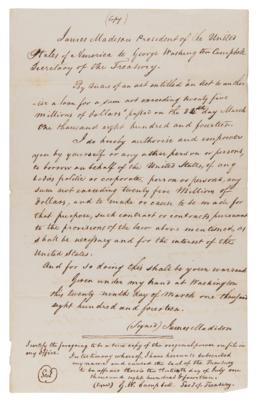 (Copy)
James Madison President of the United
States of America to George Washington Campbell
Secretary of the Treasury.
By virtue of an act entitled "an Act to autho-
rise a loan for a sum not exceeding twenty five
millions of dollars" passed on the 24th day March
One thousand eight hundred and fourteen.
I do hereby authorise and empower
you by yourself or any other person or persons,
to borrow on behalf of the United States, of any
bodies politic or corporate, person or persons, any
sum not exceeding twenty five Millions of
dollars, and to make or cause to be made for
that purpose, such contract or contracts pursuant
to the provisions of the law above mentioned, as
shall be necessary and for the interest of the
United States.
And for so doing this shall be your warrant
Given under my hand at Washington
this twenty ninth day of March one thousand
eight hundred and fourteen.
(Signed) James Madison
I certify the foregoing to be a true copy of the original, upon file in
my Office. In testimony whereof I have hereunto subscribed
my name and caused the seal of the Treasury
to be affixed hereto the day of July one
thousand eight hundred & fourteen.
(Signed) G. W. Campbell. Sec'y of Treasury.